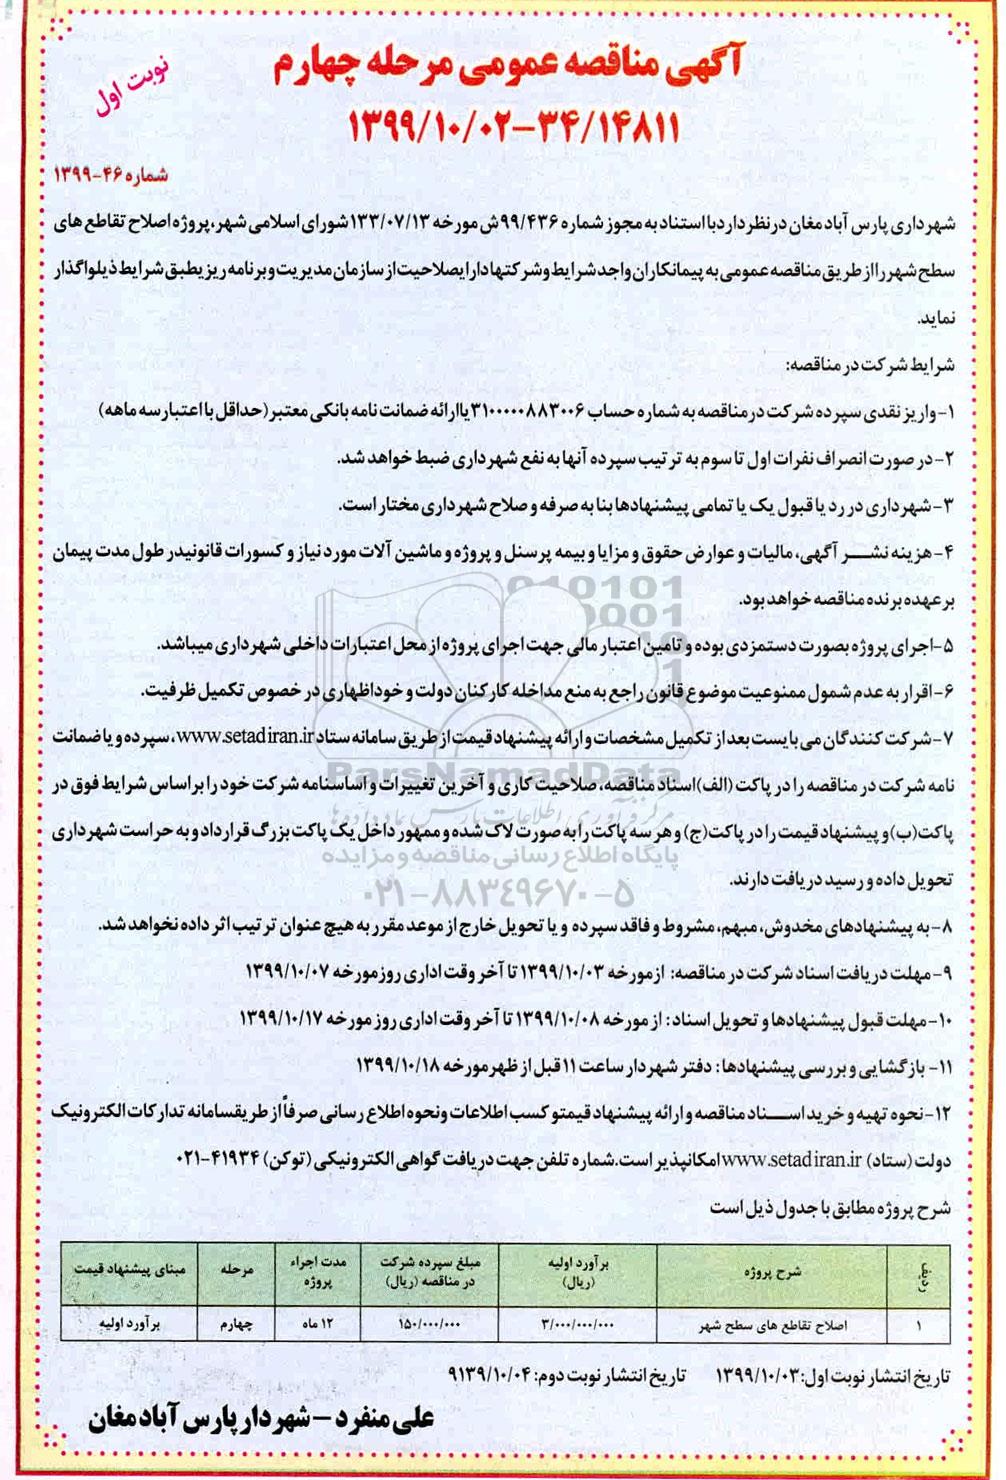 آگهی مناقصه عمومی مرحله چهارم
نوبت اول
۱۳۹۹/۱۰/۰۲-۳۴/۱۴۸۱۱
شماره ۴۶-۱۳۹۹
شهرداری پارس آباد مغان در نظر دارد با استناد به مجوز شماره ۹۹/۴۳۶ش مورخه ۱۳۳/۰۷/۱۳ شورای اسلامی شهر، پروژه اصلاح تقاطع های
سطح شهر را از طریق مناقصه عمومی به پیمانکاران واجد شرایط و شرکتها دارای صلاحیت از سازمان مدیریت و برنامه ریز یطبق شرایط ذیل واگذار
نماید.
شرایط شرکت در مناقصه:
۱-واریز نقدی سپرده شرکت در مناقصه به شماره حساب ۳۱۰۰۰۰۰۸۸۳۰۰۶ یا ارائه ضمانت نامه بانکی معتبر (حداقل با اعتبار سه ماهه)
۲-در صورت انصراف نفرات اول تا سوم به ترتیب سپرده آنها به نفع شهرداری ضبط خواهد شد.
۳-شهرداری در رد یا قبول یک یا تمامی پیشنهادها بنا به صرفه و صلاح شهرداری مختار است.
۴-هزینه نشر آگهی، مالیات و عوارض حقوق و مزایا و بیمه پرسنل و پروژه و ماشین آلات مورد نیاز و کسورات قانونیدر طول مدت پیمان
بر عهده برنده مناقصه خواهد بود.
۵-اجرای پروژه بصورت دستمزدی بوده و تامین اعتبار مالی جهت اجرای پروژه از محل اعتبارات داخلی شهرداری میباشد.
۶-اقرار به عدم شمول ممنوعیت موضوع قانون راجع به منع مداخله کارکنان دولت و خوداظهاری در خصوص تکمیل ظرفیت.
۷-شرکت کنندگان می بایست بعد از تکمیل مشخصات و ارائه پیشنهاد قیمت از طریق سامانه ستاد www.setadiran.ir، سپرده و یا ضمانت
نامه شرکت در مناقصه را در پاکت (الف) اسناد مناقصه، صلاحیت کاری و آخرین تغییرات و اساسنامه شرکت خود را بر اساس شرایط فوق در
پاکت (ب) و پیشنهاد قیمت را در پاکت (ج) و هر سه پاکت را به صورت لاک شده و ممهور داخل یک پاکت بزرگ قرار داد و به حراست شهرداری
تحویل داده و رسید دریافت دارند.
۸-به پیشنهادهای مخدوش، مبهم، مشروط و فاقد سپرده و یا تحویل خارج از موعد مقرر به هیچ عنوان ترتیب اثر داده نخواهد شد.
۹-مهلت دریافت اسناد شرکت در مناقصه: از مورخه ۱۳۹۹/۱۰/۰۳ تا آخر وقت اداری روز مورخه ۱۳۹۹/۱۰/۰۷
۱۰-مهلت قبول پیشنهادها و تحویل اسناد: از مورخه ۱۳۹۹/۱۰/۰۸ تا آخر وقت اداری روز مورخه ۱۳۹۹/۱۰/۱۷
۱۱- بازگشایی و بررسی پیشنهادها: دفتر شهردار ساعت ۱۱ قبل از ظهر مورخه ۱۳۹۹/۱۰/۱۸
۱۲-نحوه تهیه و خرید اسناد مناقصه و ارائه پیشنهاد قیمتو کسب اطلاعات ونحوه اطلاع رسانی صرفاً از طریقسامانه تدارکات الکترونیک
دولت (ستاد) www.setadiran.ir امکانپذیر است. شماره تلفن جهت دریافت گواهی الکترونیکی (توکن) ۴۱۹۳۴-۰۲۱
شرح پروژه مطابق با جدول ذیل است
ردیف شرح پروژه برآورد اولیه (ریال) مبلغ سپرده شرکت در مناقصه (ریال) مدت اجراء پروژه مرحله مبنای پیشنهاد قیمت
۱ اصلاح تقاطع های سطح شهر ۳/۰۰۰/۰۰۰/۰۰۰ ۱۵۰/۰۰۰/۰۰۰ ۱۲ ماه چهارم برآورد اولیه
تاریخ انتشار نوبت اول: ۱۳۹۹/۱۰/۰۳ تاریخ انتشار نوبت دوم: ۹۱۳۹/۱۰/۰۴
علی منفرد - شهردار پارس آباد مغان
ParsNamadData
مرکز فرآوری اطلاعات پارس نماد داده ها
پایگاه اطلاع رسانی مناقصه و مزایده
۰۲۱-۸۸۳۴۹۶۷۰-۵